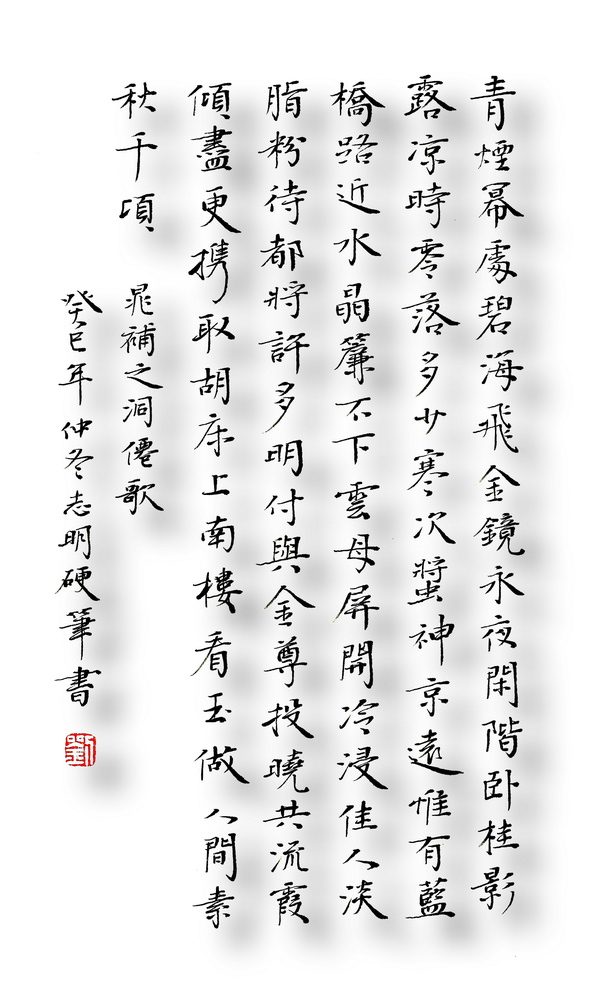 青煙冪處碧海飛金鏡永夜閑階卧桂影
露凉時零落多少寒次螿神京遠惟有藍
橋路近水晶簾不下雲母屏開冷浸佳人淡
脂粉待都將許多明付與金尊投曉共流霞
傾盡更携取胡床上南樓看玉做人間素
秋千頃
晁補之洞僊歌
癸巳年仲冬志明硬筆書
劉